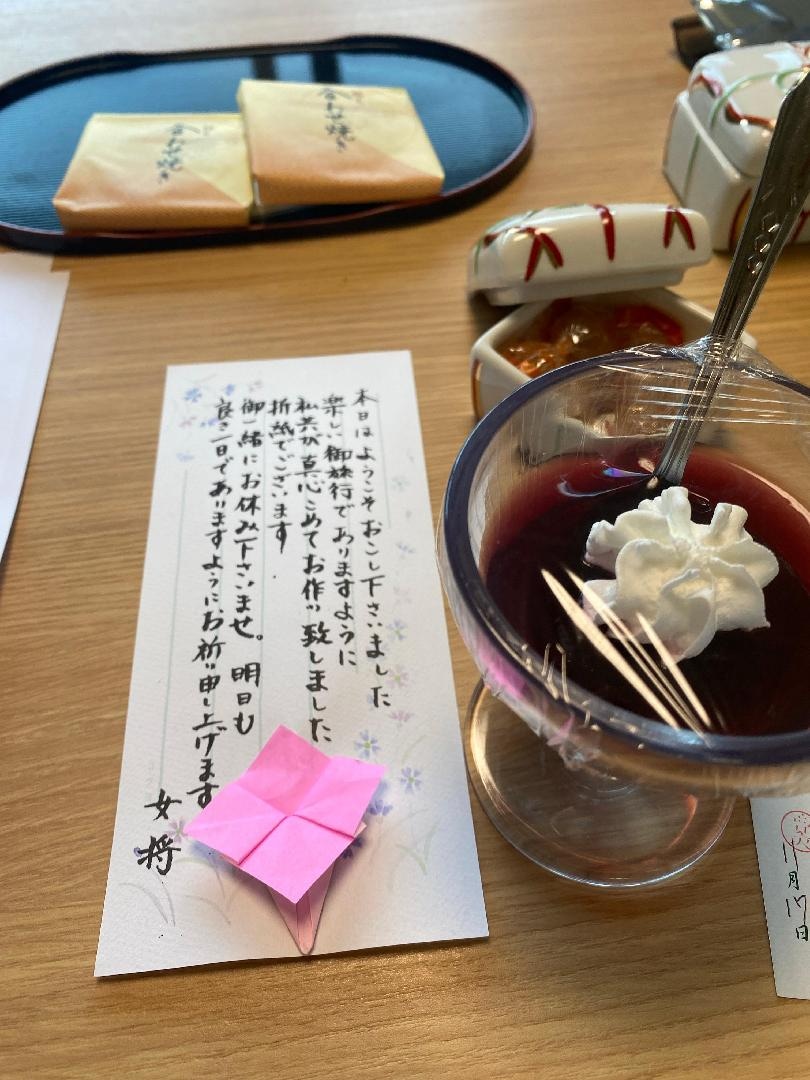 合わせ焼き
合わせ焼き
本日はようこそおこし下さいました
楽しい御旅行でありますように
私共が真心こめてお作り致しました
折紙でございます
御一緒にお休み下さいませ。明日も
良き一日でありますようにお祈り申し上げます
女将